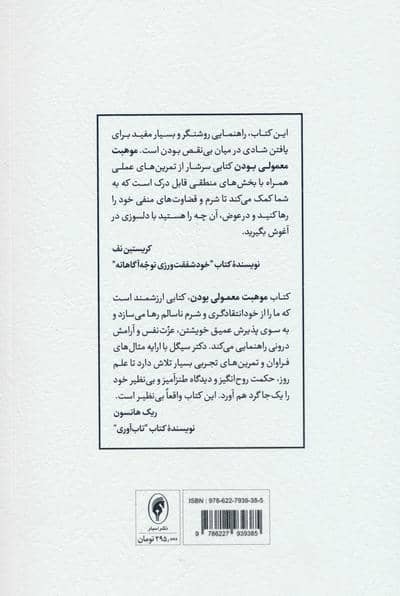 این کتاب، راهنمایی روشنگر و بسیار مفید برای
یافتن شادی در میان بی‌نقص بودن است. موهبت
معمولی بودن کتابی سرشار از تمرین‌های عملی
همراه با بخش‌های منطقی قابل درک است که به
شما کمک می‌کند تا شرم و قضاوت‌های منفی خود را
رها کنید و درعوض، آن چه را هستید با دلسوزی در
آغوش بگیرید.
کریستین نف
نویسندهٔ کتاب "خودشفقت‌ورزی توجه‌آگاهانه"
کتاب موهبت معمولی بودن، کتابی ارزشمند است
که ما را از خودانتقادگری و شرم ناسالم رها می‌سازد و
به سوی پذیرش عمیق خویشتن، عزّت‌نفس و آرامش
درونی راهنمایی می‌کند. دکتر سیگل با ارایه مثال‌های
فراوان و تمرین‌های تجربی بسیار تلاش دارد تا علم
روز، حکمت روح‌انگیز و دیدگاه طنزآمیز و بی‌نظیر خود
را یک‌جا گرد هم آورد. این کتاب واقعاً بی‌نظیر است.
ریک هانسون
نویسندهٔ کتاب "تاب‌آوری"
ISBN : 978-622-7939-38-5
9 786227 939385
نشر اسبار
۲۹۵,۰۰۰ تومان